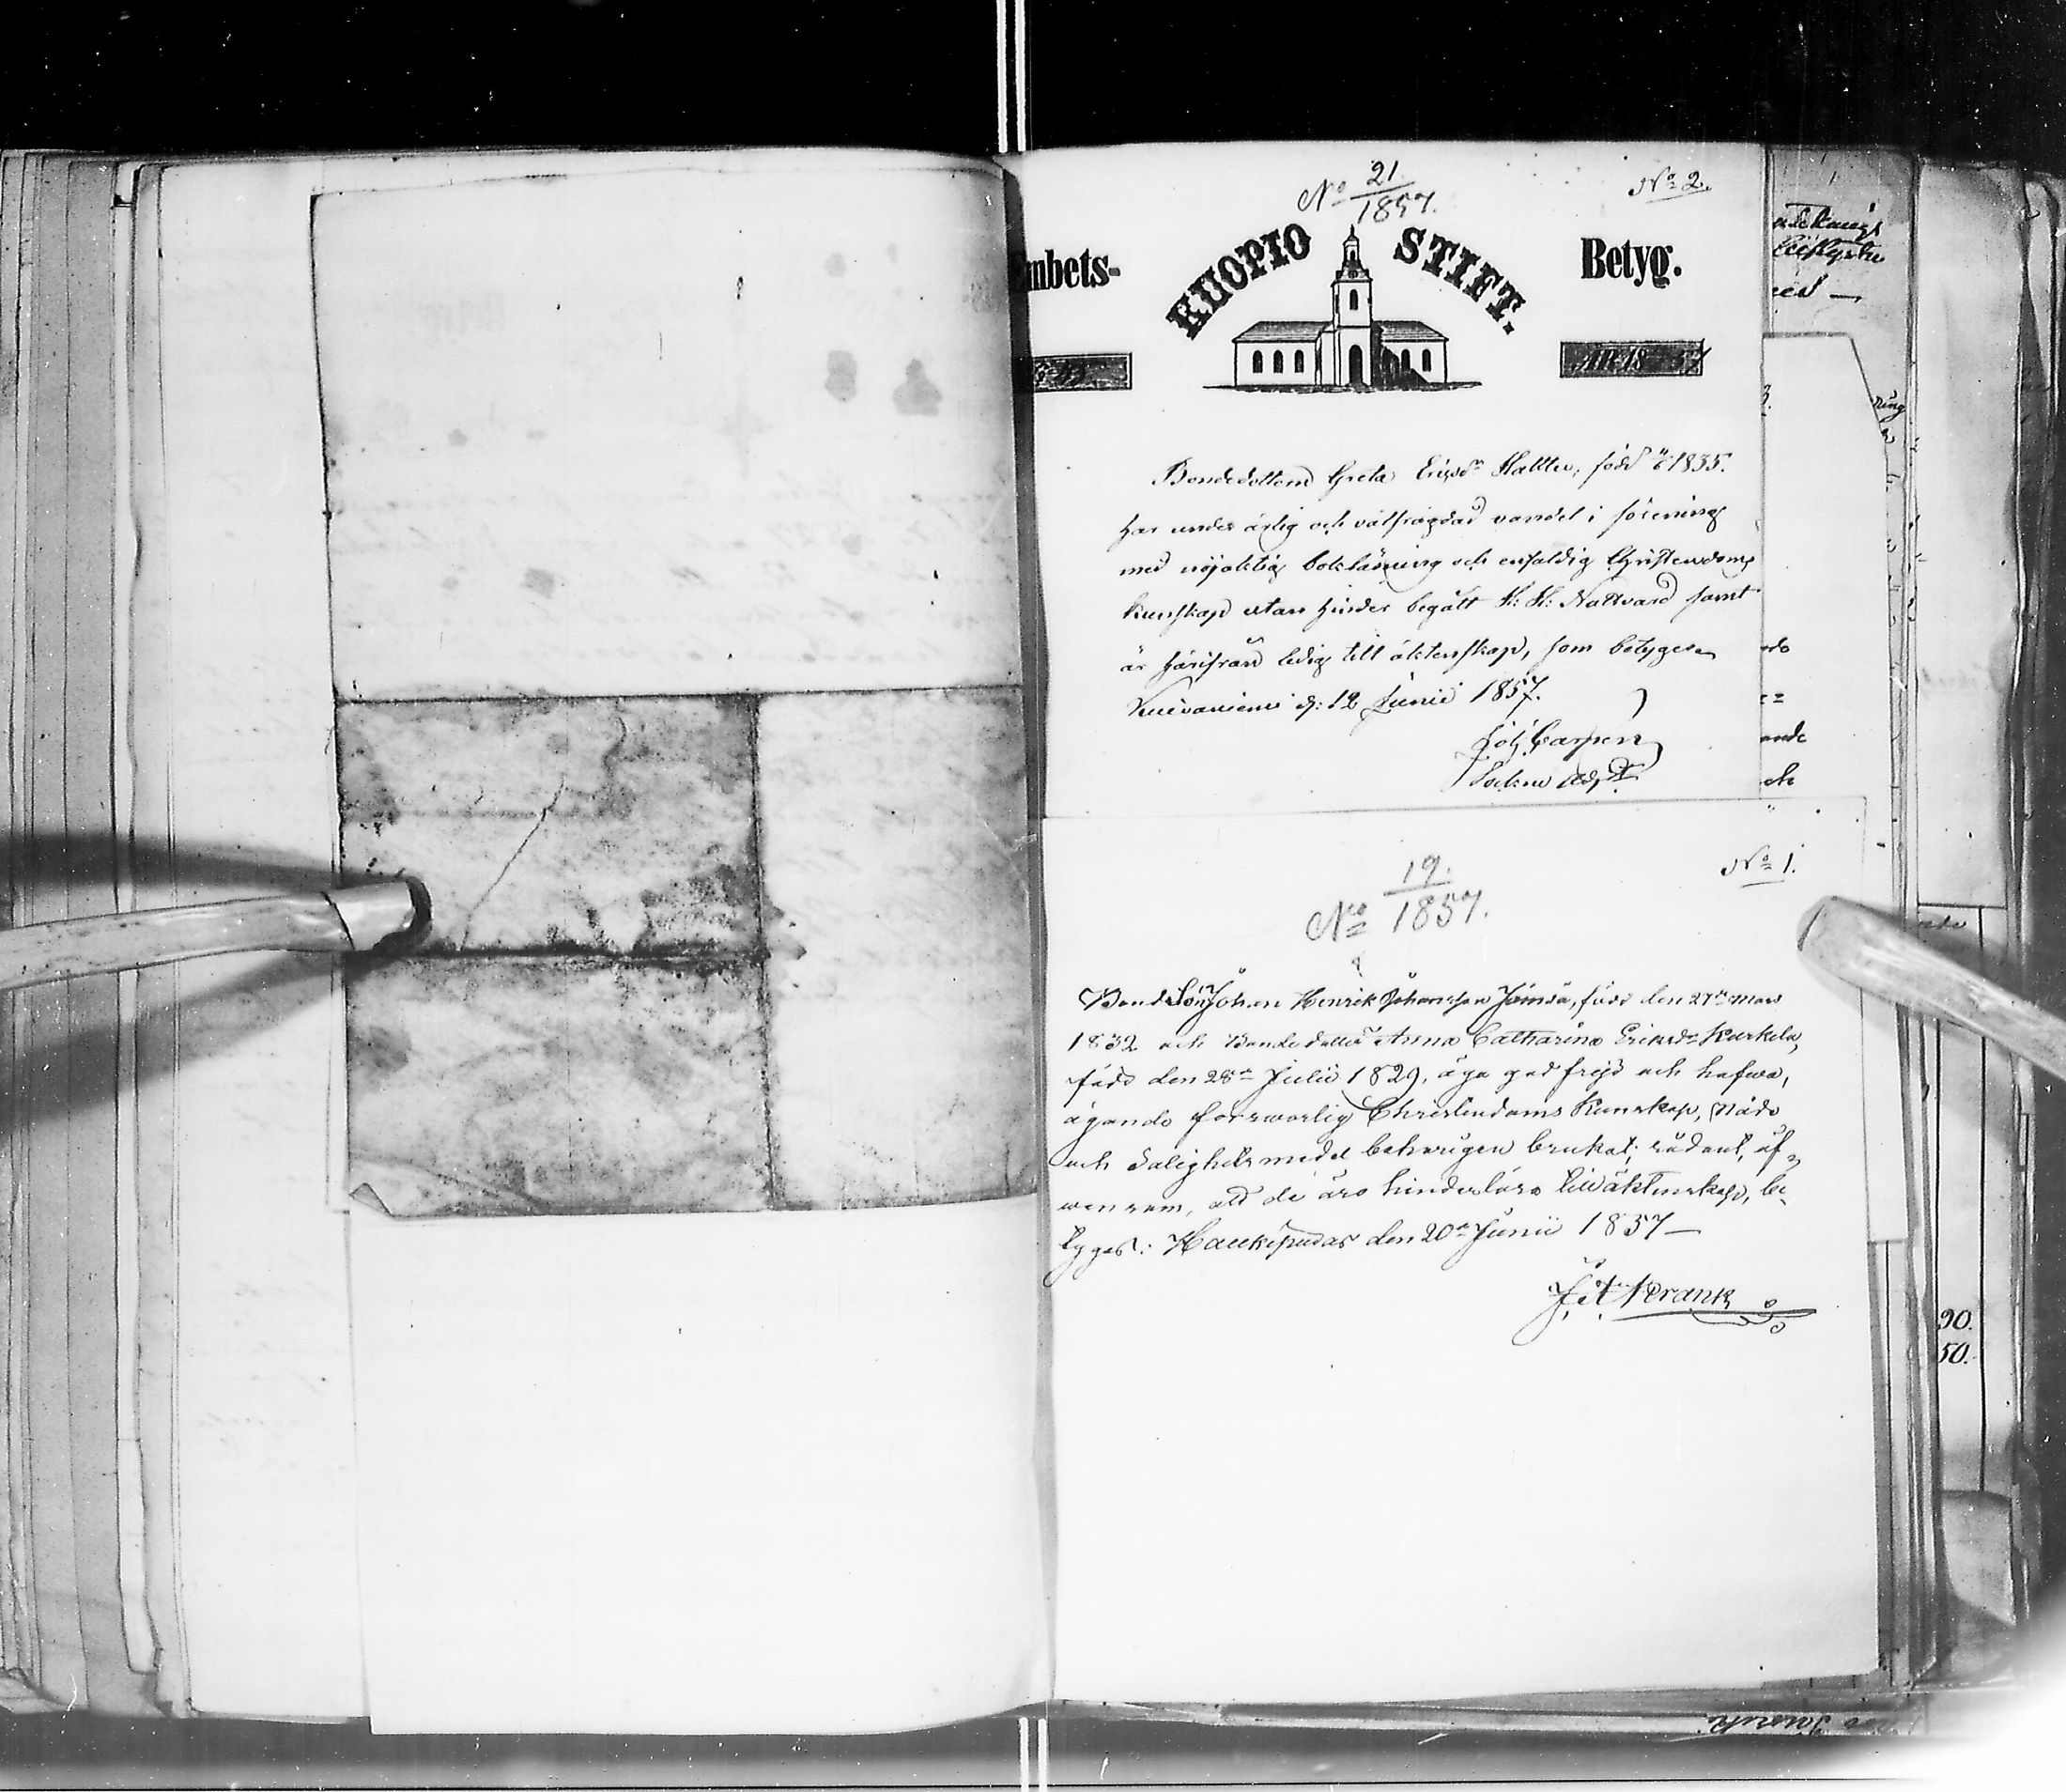 No 21/1857.
No 2.
mbets-
KUOPIO STIFT.
Betyg.
ÅR 18 57
Bondedottern Greta Ericsdr Hallta, född 1835.
har under ärlig och välfrägdad vandel i förening
med nöjaktig bokläsning och enfaldig Christendoms
kunskap utan hinder begått H: H: Nattvard samt
är härifrån ledig till äktenskap, som betygas
Kuivaniemi d: 12 Junii 1857.
Joh Carpen
Sockne Adjt
No 1.
19.
No 1857.
BondeSon Johan Henrik Johansson Jämsä, född den 27de Mars
1832 och Bondedotter Anna Catharina Ericsdr Kurkela,
född den 28de Julii 1829, äga god frejd och hafwa,
ägande forswarlig Christendoms Kunskap, Nåde
och Salighets medel behörigen brukat: sådant, äf-
wensom, att de äro hinderlösa till äktenskap, be-
tygas: Haukipudas den 20de Junii 1857—
Frank
ande
90.
50.